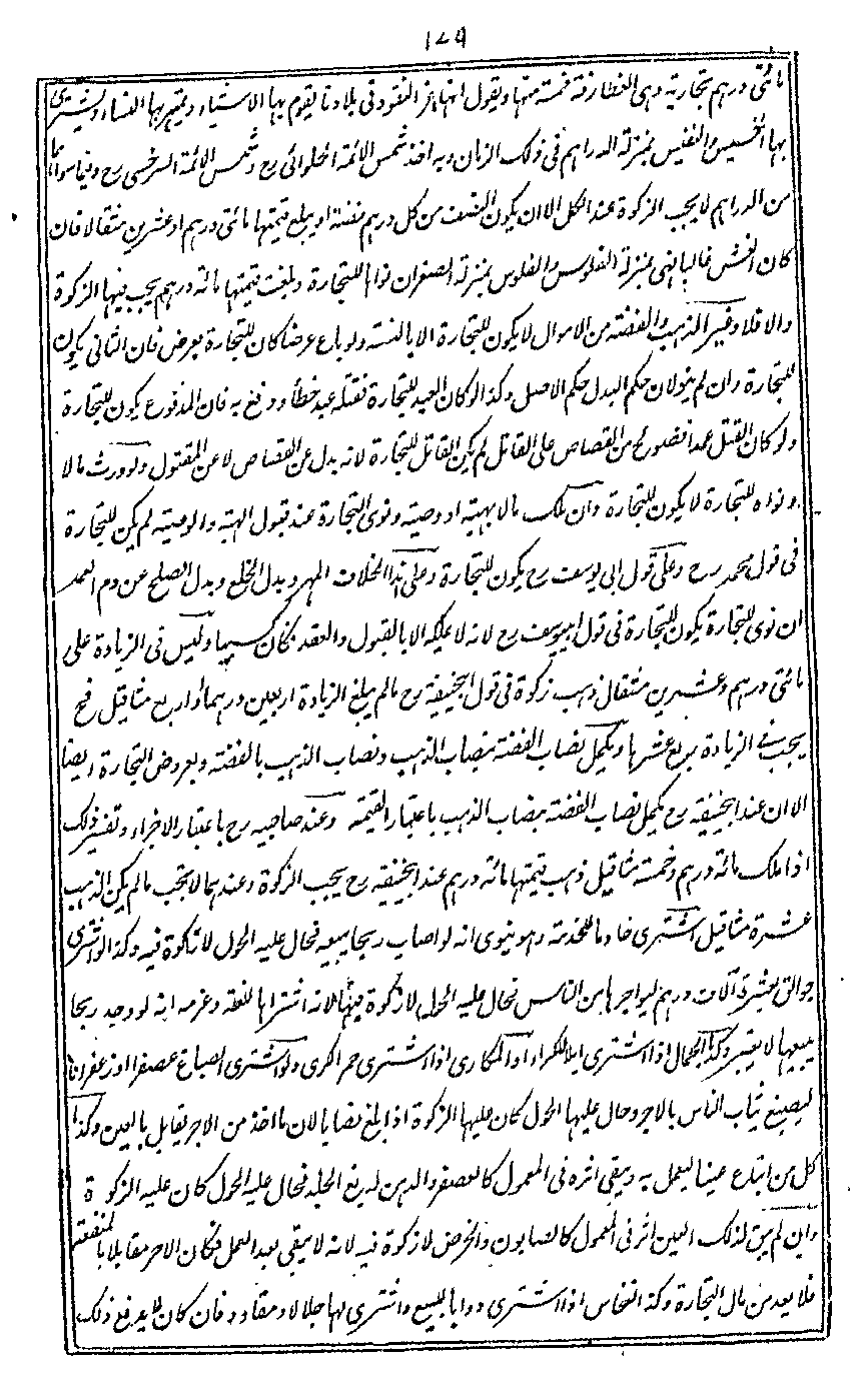 ١٤٩
مائتي درهم بخارية وهي الغطارفة خمسة منها ويقول انها اعز النقود في بلادنا يقوم بها الاشياء ويمهر بها النساء ويشترى
بها الخسيس والنفيس بمنزلة الدراهم في ذلك الزمان وبه اخذ شمس الائمة الحلوائي رح وشمس الائمة السرخسي رح وفيما سواها
من الدراهم لا يجب الزكوة عند الكل الا ان يكون الفضة من كل درهم نصفه او يبلغ قيمتها مائتي درهم او عشرين مثقالا فان
كان الغش غالبا فهي بمنزلة الفلوس والفلوس بمنزلة الصفر ان نواها للتجارة وبلغت قيمتها مائة درهم يجب فيها الزكوة
والا فلا وغير الذهب والفضة من الاموال لا يكون للتجارة الا بالنية ولو باع عرضا كان للتجارة بعرض فان الثاني يكون
للتجارة وان لم ينو لان حكم البدل حكم الاصل وكذا لو كان العبد للتجارة فقتله عبد خطأ ودفع به فان المدفوع يكون للتجارة
ولو كان القتل عمدا فصولح من القصاص على القاتل لم يكن القاتل للتجارة لانه بدل عن القصاص لا عن المقتول ولو ورث مالا
ونواه للتجارة لا يكون للتجارة وان ملك مالا بهبة او وصية ونوى التجارة عند قبول الهبة والوصية لم يكن للتجارة
في قول محمد رح وعلى قول ابي يوسف رح يكون للتجارة وعلى هذا الخلاف المهر وبدل الخلع وبدل الصلح عن دم العمد
ان نوى للتجارة يكون للتجارة في قول ابيوسف رح لانه لا يملكه الا بالقبول والعقد فكان كسبا وليس في الزيادة على
مائتي درهم وعشرين مثقال ذهب زكوة في قول ابيحنيفة رح مالم يبلغ الزيادة اربعين درهما او اربع مثاقيل فح
يجب في الزيادة ربع عشرها ويكمل نصاب الفضة بنصاب الذهب ونصاب الذهب بالفضة وبعروض التجارة ايضا
الا ان عند ابيحنيفة رح يكمل نصاب الفضة بنصاب الذهب باعتبار القيمة وعند صاحبيه رح باعتبار الاجزاء وتفسير ذلك
اذا ملك مائة درهم وخمسة مثاقيل ذهب قيمتها مائة درهم عند ابيحنيفة رح يجب الزكوة وعندهما لا يجب مالم يكن الذهب
عشرة مثاقيل اشترى خادما للخدمة وهو ينوي انه لو اصاب ربحا يبيعه فحال عليه الحول لا زكوة فيه وكذا لو اشترى
جوالق بعشرة آلاف درهم ليواجرها من الناس فحال عليه الحول لا زكوة فيها لانه اشتراها للغلة وعزمه انه لو وجد ربحا
يبيعها لا يعتبر وكذا الجمال اذا اشترى ابلا للكراء او المكاري اذا اشترى حمرا للكرى ولو اشترى الصباغ عصفرا او زعفرانا
ليصبغ ثياب الناس بالاجر وحال عليها الحول كان عليها الزكوة اذا بلغ نصابا لان ما اخذ من الاجر يقابل بالعين وكذا
كل من ابتاع عينا ليعمل به ويبقى اثره في المعمول كالعصفر والدهن لدبغ الجلد فحال عليه الحول كان عليه الزكوة
وان لم يبق لذلك العين اثر في المعمول كالصابون والحرض لا زكوة فيه لانه لا يبقى بعد العمل فكان الاجر مقابلا بالمنفعة
فلا يعد من مال التجارة وكذا النخاس اذا اشترى دوابا للبيع واشترى لها جلالا ومقاود فان كان لا يدفع ذلك